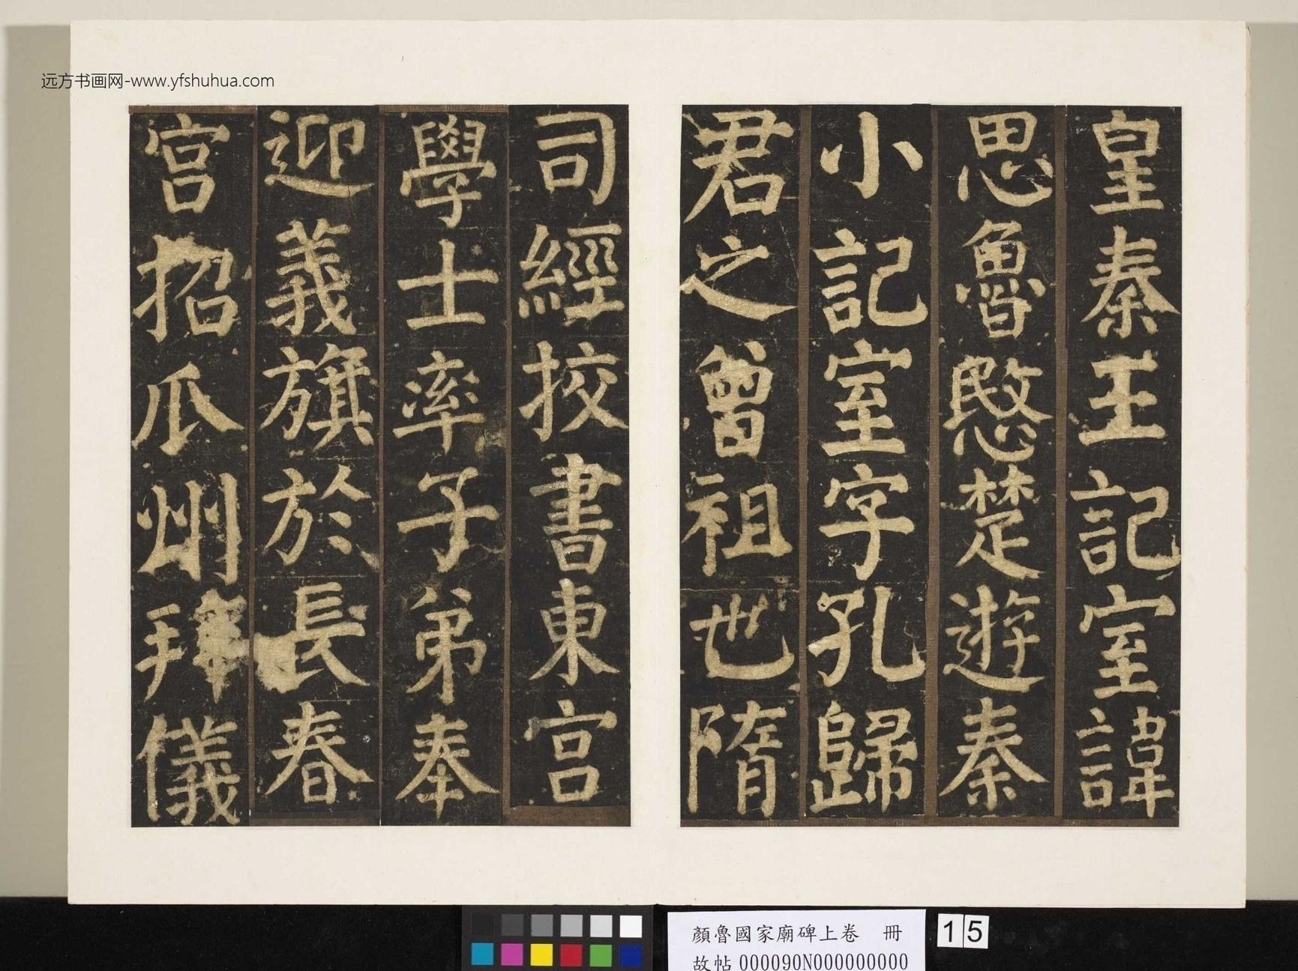 远方书画网-www.yfshuhua.com
皇秦王記室諱
思魯愍楚遊秦
小記室字孔歸
君之曾祖世隋
司經挍書東宮
學士率子弟奉
迎義旗於長春
宮招瓜州拜儀
顏魯國家廟碑上卷 冊
故帖000090N000000000
15